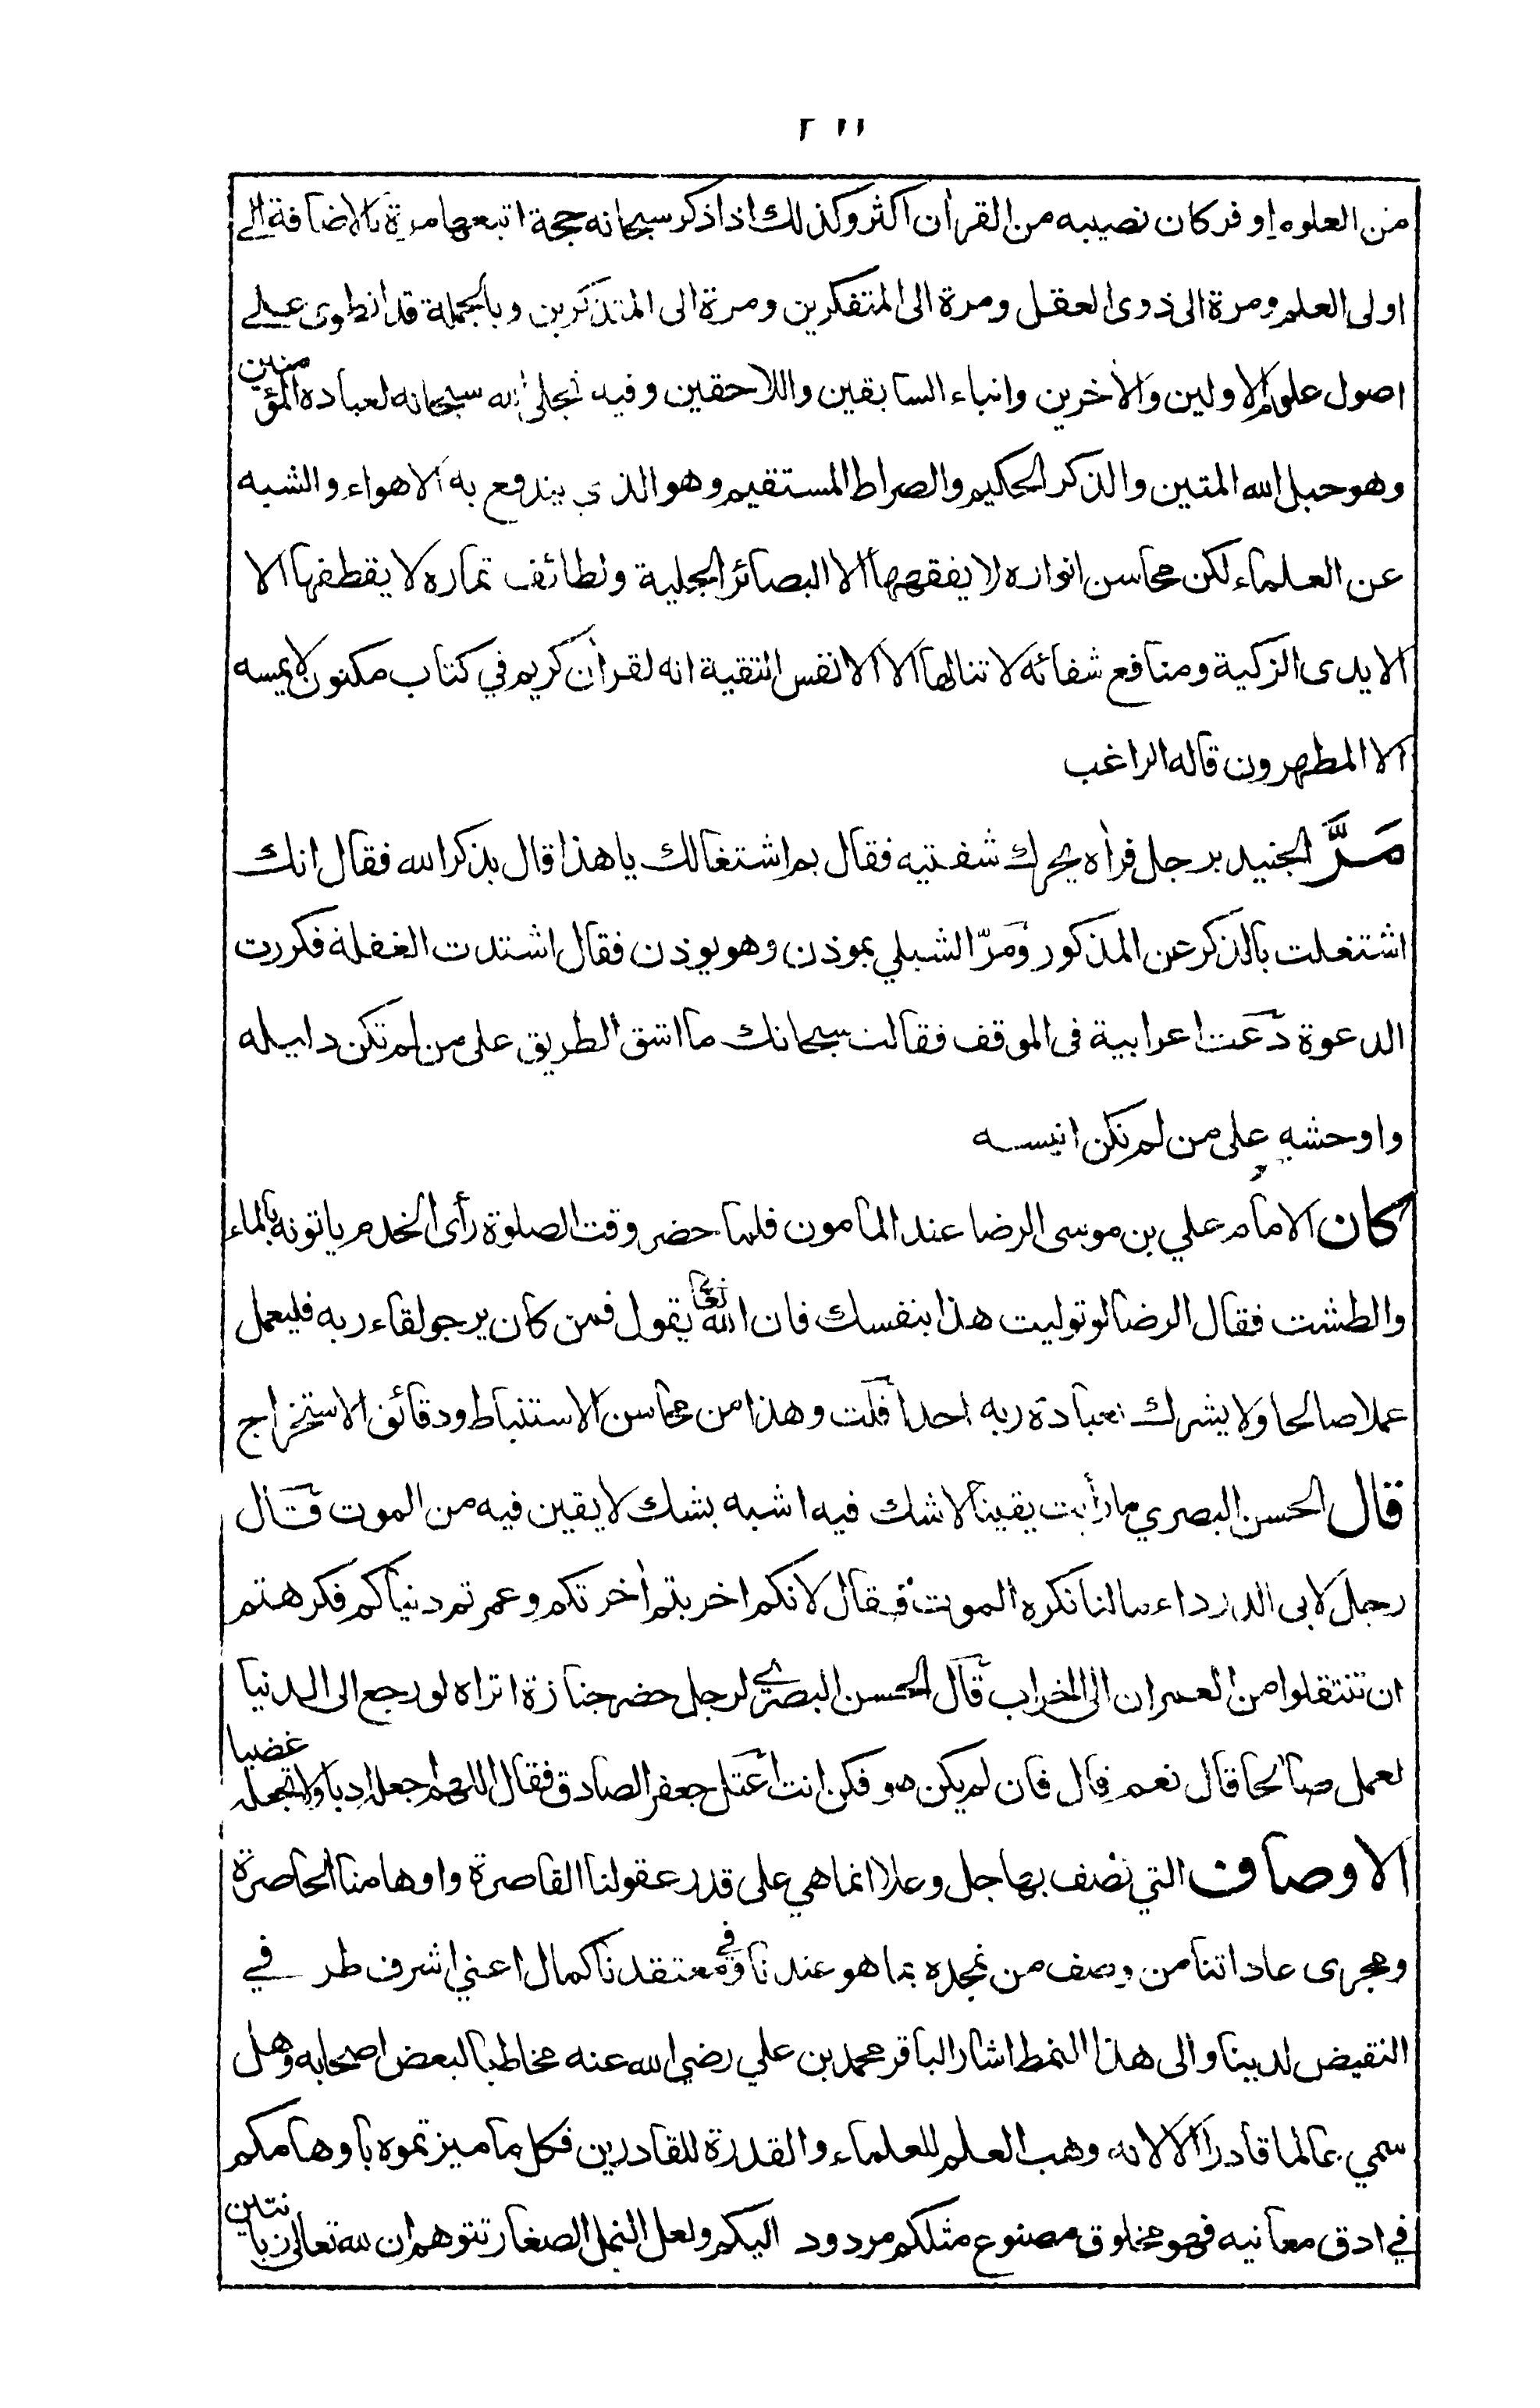 ٢١١
من العلوم اوفر كان نصيبه من القرأن اكثر وكذلك اذا ذكر سبحانه حجة اتبعها مرة بالاضافة الى
اولى العلم ومرة الى ذوى العقل ومرة الى المتفكرين ومرة الى المتذكرين وبالجملة قد انطوى على
اصول علوم الاولين والأخرين وانباء السابقين واللاحقين وفيه تجلى الله سبحانه لعباده المؤمنين
وهو حبل الله المتين والذكر الحكيم والصراط المستقيم وهو الذى يندفع به الاهواء والشبه
عن العلماء لكن محاسن انواره لا يفقهها الا البصائر الجلية ولطائف ثماره لا يقطفها الا
الايدى الزكية ومنافع شفائه لا تنالها الا الانفس النقية انه لقرأن كريم في كتاب مكنون لا يمسه
الا المطهرون قاله الراغب
مَرَّ الجنيد برجل فرأه يحرك شفتيه فقال بم اشتغالك يا هذا قال بذكر الله فقال انك
اشتغلت بالذكر عن المذكور ومَرّ الشبلي بموذن وهو يوذن فقال اشتدت الغفلة فكررت
الدعوة دعت اعرابية فى الموقف فقالت سبحانك ما اشق الطريق على من لم تكن دليله
واوحشه على من لم تكن انيسه
كان الامام علي بن موسى الرضا عند المامون فلما حضر وقت الصلوة رأى الخدم ياتونه بالماء
والطشت فقال الرضا لو توليت هذا بنفسك فان الله تعالى يقول فمن كان يرجو لقاء ربه فليعمل
عملا صالحا ولا يشرك بعبادة ربه احدا قلت وهذا من محاسن الاستنباط ودقائق الاستخراج
قال الحسن البصري ما رأيت يقينا لا شك فيه اشبه بشك لا يقين فيه من الموت قال
رجل لابى الدرداء مالنا نكره الموت فقال لانكم اخربتم أخرتكم وعمرتم دنياكم فكرهتم
ان تنتقلوا من العمران الى الخراب قال الحسن البصرى لرجل حضر جنازة اتراه لو رجع الى الدنيا
لعمل صالحا قال نعم قال فان لم يكن هو فكن انت اعتل جعفر الصادق فقال اللهم اجعله ادبا ولا تجعله غضبا
الاوصاف التي نصف بها جل وعلا انما هي على قدر عقولنا القاصرة واوهامنا الحاصرة
ومجرى عاداتنا من وصف من نمجده بما هو عندنا وفي معتقدنا كمال اعني اشرف طرفي
النقيض لدينا والى هذا النمط اشار الباقر محمد بن علي رضي الله عنه مخاطبا لبعض اصحابه وهل
سمي عالما قادرا الا لانه وهب العلم للعلماء والقدرة للقادرين فكل ما ميزتموه باوهامكم
في ادق معانيه فهو مخلوق مصنوع مثلكم مردود اليكم ولعل النمل الصغار تتوهم ان لله تعالى زبانتين